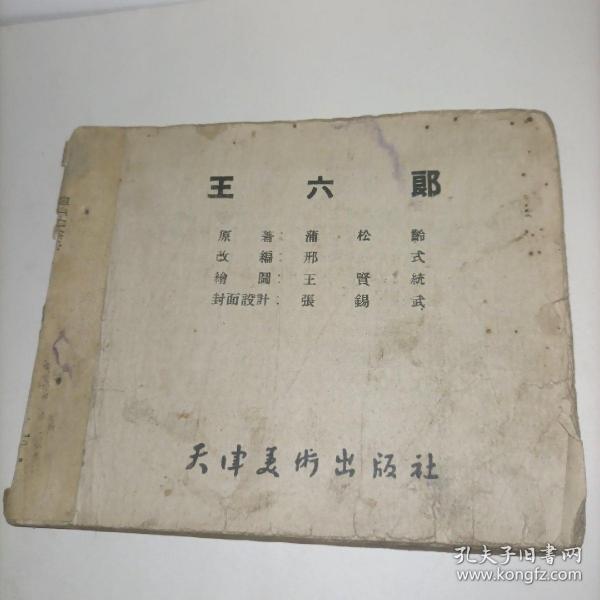 王六郎
原著：蒲松齡
改編：邢式
繪圖：王賢統
封面設計：張錫武
天津美術出版社
孔夫子旧书网
www.kongfz.com